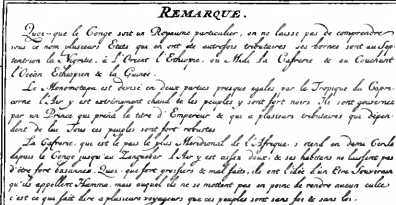 REMARQUE.
Quoi-que le Congo soit un Royaume particulier, on ne laisse pas de comprendre
sous ce nom plusieurs Etats qui en ont été autrefois tributaires ses bornes sont au Sep-
tentrion la Nigritie, à L'Orient l'Ethiopie, au Midi la Cafrerie & au Couchant
l'Océan Ethiopien & la Guinée.
Le Monomotapa est divisé en deux parties presque egales, par le Tropique du Capri-
corne l'Air y est extrémement chaud & les peuples y sont fort noirs Ils sont gouvernez
par un Prince qui prend le titre d'Empereur & qui a plusieurs tributaires qui depen-
dent de lui Tous ces peuples sont fort robustes
La Cafrerie, qui est le païs le plus Meridional de l'Afrique s'étend en demi Cercle
depuis le Congo jusqu'au Zanguebar L'Air y est assez doux, & ses habitans ne laissent pas
d'être fort basannés. Quoi-que fort grossiers & mal faits, ils ont l'idée d'un Etre Souverain
qu'ils appellent Humma, mais auquel ils ne se mettent pas en peine de rendre aucun culte
c'est ce qui fait dire a plusieurs voyageurs que ces peuples sont sans foi & sans loi.